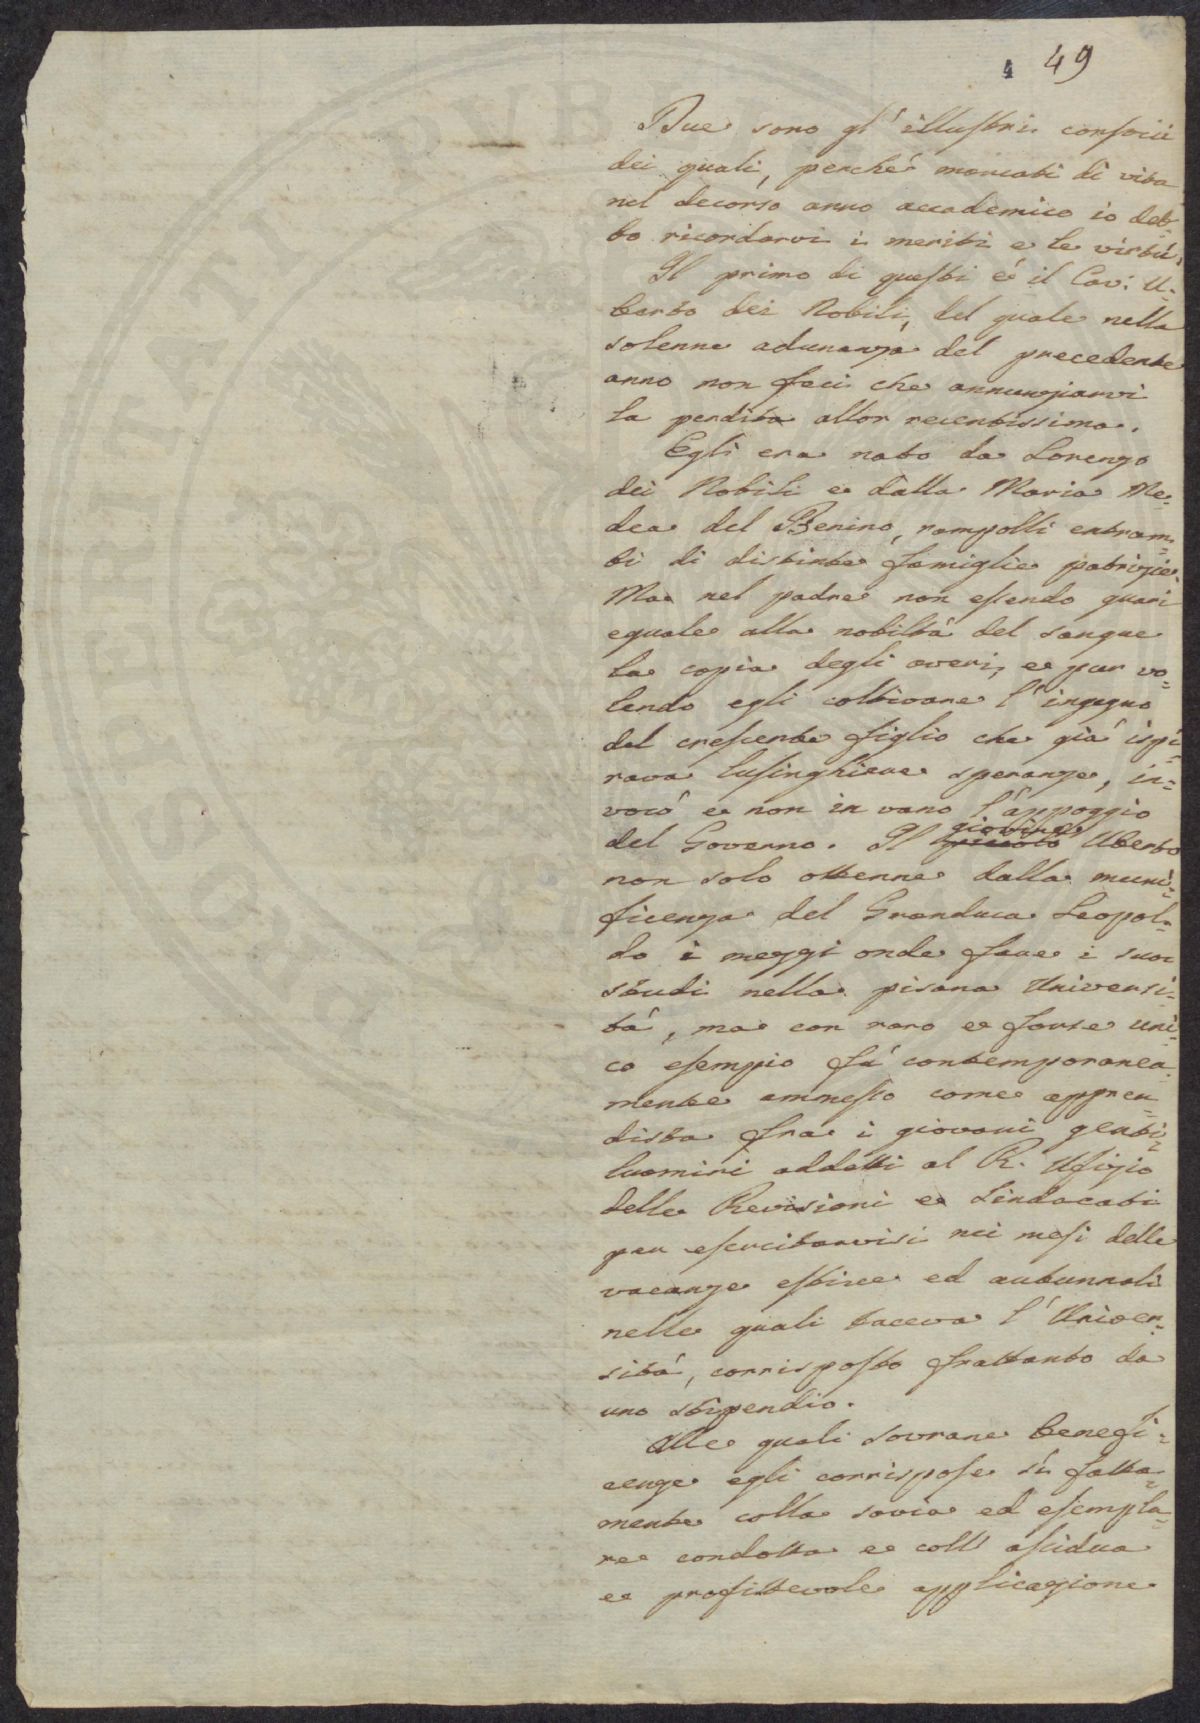 4 49
Due sono gl'illustri consocii
dei quali, perchè mancati di vita
nel decorso anno accademico io deb-
bo ricordarvi i meriti e le virtù.
Il primo di questi è il Cav: U-
berto dei Nobili, del quale nella
solenne adunanza del precedente
anno non feci che annunziarvi
la perdita allor recentissima.
Egli era nato da Lorenzo
dei Nobili e dalla Maria Me-
dea del Benino, rampolli entram-
bi di distinte famiglie patrizie.
Ma nel padre non essendo guari
eguale alla nobiltà del sangue
la copia degli averi, e pur vo-
lendo egli coltivare l'ingegno
del crescente figlio che già ispi-
rava lusinghiere speranze, in-
vocò e non in vano l'appoggio
del Governo. Il piccolo giovine Uberto
non solo ottenne dalla muni-
ficenza del Granduca Leopol-
do i mezzi onde fare i suoi
studi nella pisana Universi-
tà, ma con raro e forse uni-
co esempio fù contemporanea
mente ammesso come appren
dista fra i giovani genti-
luomini addetti al R. Ufizio
delle Revisioni e Sindacati
per esercitarvisi nei mesi delle
vacanze estive ed autunnali
nelle quali taceva l'Univer-
sità, corrisposto frattanto da
uno stipendio.
Alle quali sovrane benefi-
cenze egli corrispose sì fatta-
mente colla savia ed esempla-
re condotta e coll'assidua
e profittevole applicazione